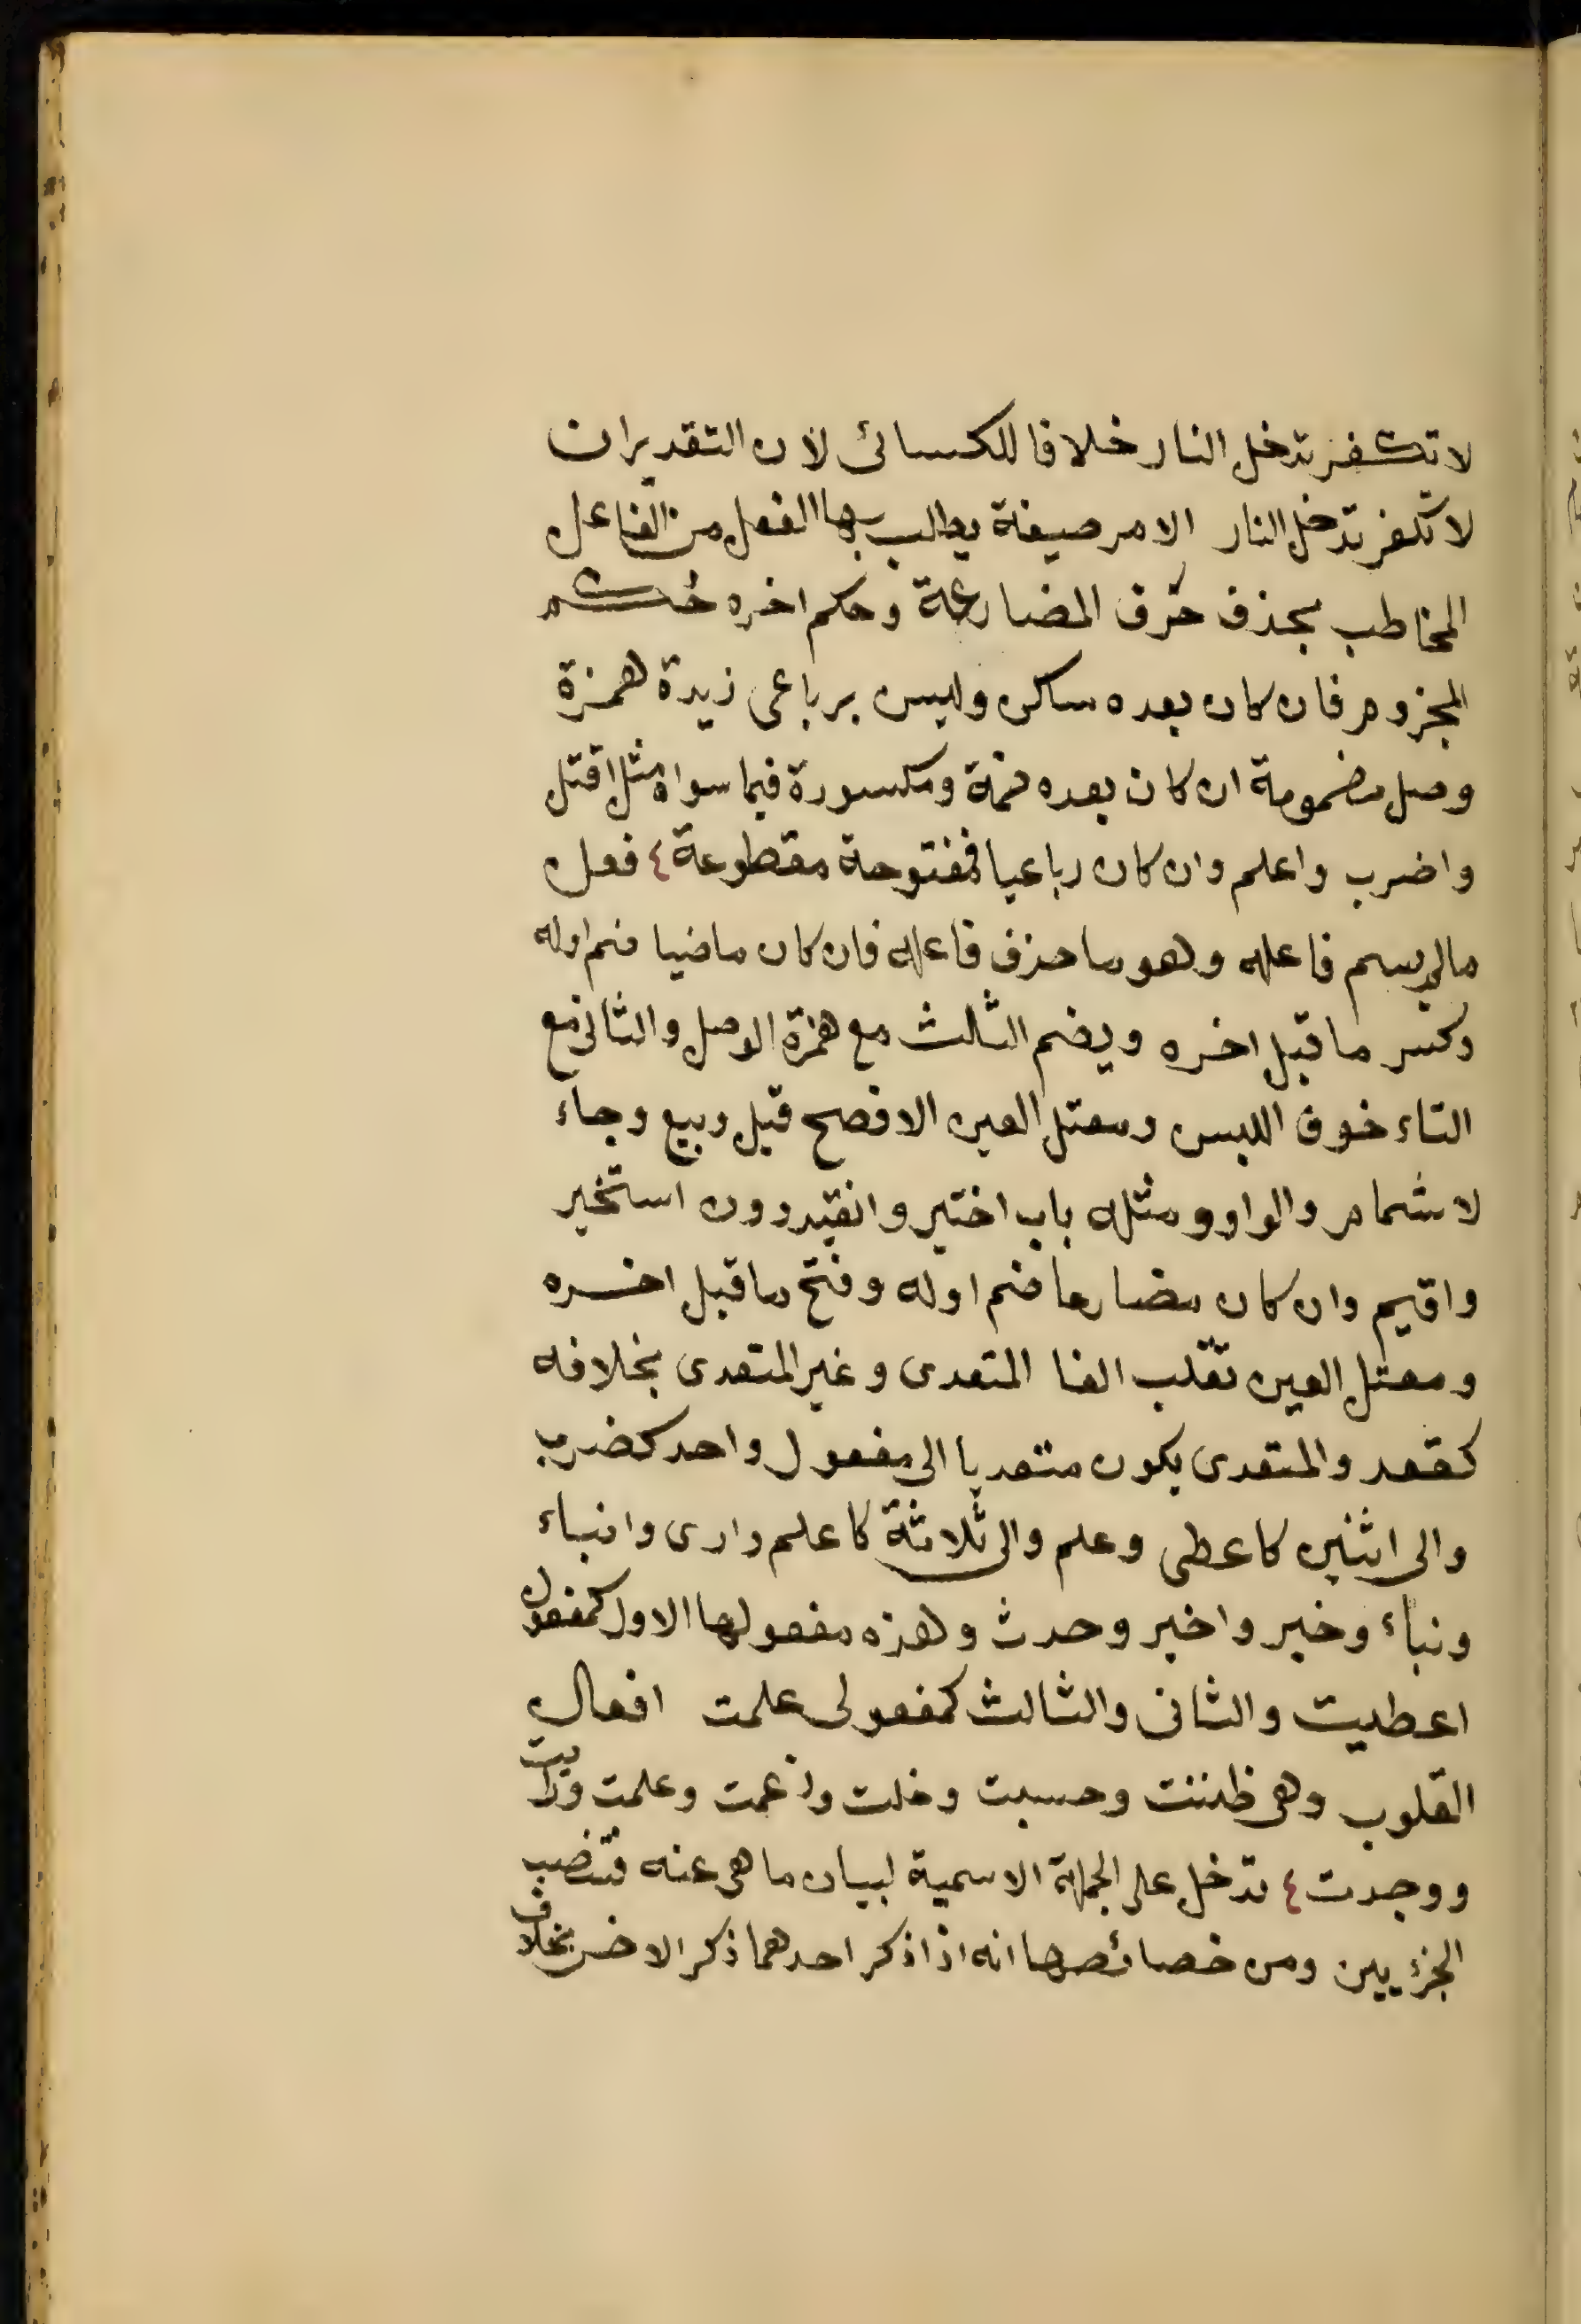 لا تكفر تدخل النار خلافا للكسائى لان التقدير ان
لا تكفر تدخل النار الامر صيغة يطلب بها الفعل من الفاعل
المخاطب بحذف حرف المضارعة وحكم اخره حكم
المجزوم فان كان بعده ساكن وليس برباعى زيدة همزة
وصل مضمومة ان كان بعده ضمة ومكسورة فيما سواه مثل اقتل
واضرب واعلم وان كان رباعيا فمفتوحة مقطوعة ٤ فعل
مالم يسم فاعله وهو ما حذف فاعله فان كان ماضيا ضم اوله
وكسر ما قبل اخره ويضم الثالث مع همزة الوصل والثانى مع
التاء خوف اللبس ومعتل العين الافصح قيل وبيع وجاء
لاشمام والواو ومثله باب اختير وانقيد دون استخير
واقيم وان كان مضارعا ضم اوله وفتح ما قبل اخره
ومعتل العين تقلب الفا المتعدى وغير المتعدى بخلافه
كقعد والمتعدى يكون متعديا الى مفعول واحد كضرب
والى اثنين كاعطى وعلم والى ثلاثة كاعلم وارى وانباء
ونباء وخبر واخبر وحدث وهذه مفعولها الاول كمفعول
اعطيت والثانى والثالث كمفعولى علمت افعال
القلوب وهى ظننت وحسبت وخلت وزعمت وعلمت ورايت
ووجدت ٤ تدخل على الجملة الاسمية لبيان ما هى عنه فتنصب
الجزءيين ومن خصائصها انه اذا ذكر احدهما ذكر الاخر بخلاف